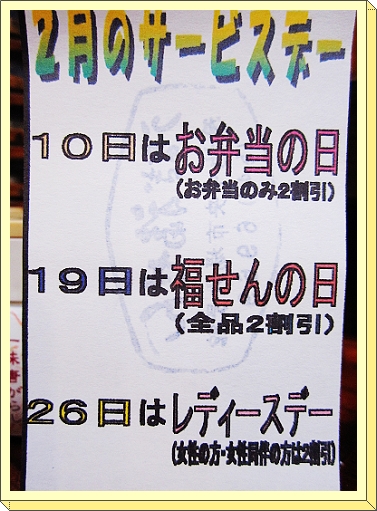 2月のサービスデー
10日はお弁当の日
(お弁当のみ2割引)
19日は福せんの日
(全品2割引)
26日はレディースデー
(女性の方・女性同伴の方は2割引)